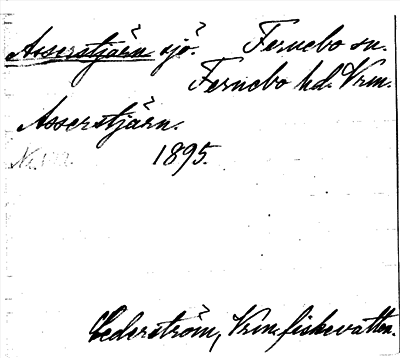 Asserstjärn sjö. Fernebo sn.
Fernebo hd. Vrm.
Asserstjärn.
1895.
Cederström, Vrm. fiskevatten.